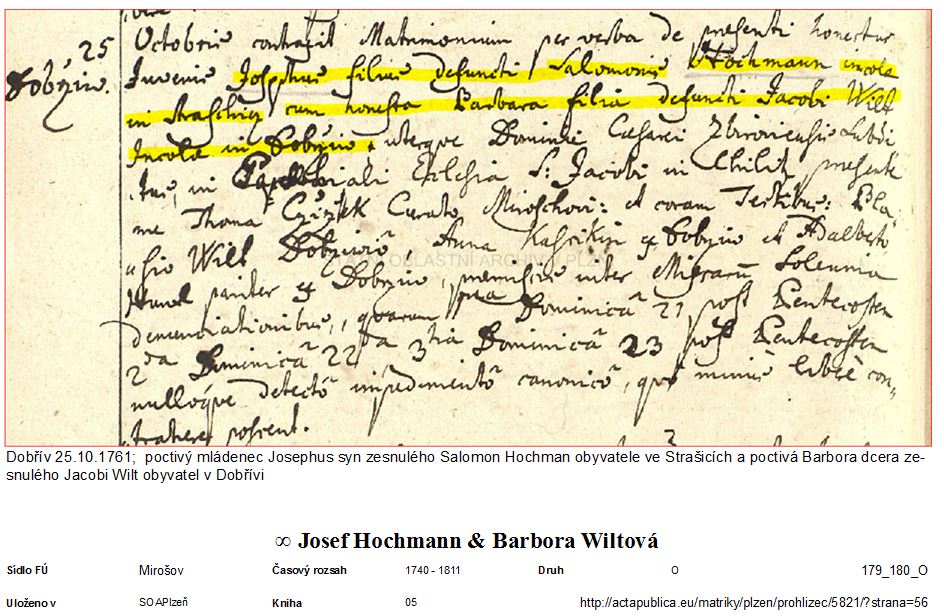 25 Octobris contraxit Matrimonium per verba de presenti honestus
Dobrziw. Juvenis Josephus filius defuncti Salomonis Hochmann incola
in Straschitz cum honesta Barbara filia defuncti Jacobi Wilt
Incola in Dobrziw, uterque Dominii Cesarei Zbiroviensis Subdi,
tus, in Parochiali Ecclesia S: Jacobi in Chilitz presente
me Thoma Czizek Curato Miroschovi: et coram Testibus: Bla,
sio Wilt Dobrziw, Anna ex Dobrziw et Adalberto
Hawel pariter ex Dobrziw, premissis inter Missarum Solemnia
denunciationibus, quarum 1ma Dominica 21 post Pentecosten
2da Dominica 22da 3tia Dominica 23 post Pentecosten
nulloque detecto impedimento canonico, quo minus libere con,
trahere possent.
STÁTNÍ OBLASTNÍ ARCHIV V PLZNI
Dobřív 25.10.1761;  poctivý mládenec Josephus syn zesnulého Salomon Hochman obyvatele ve Strašicích a poctivá Barbora dcera ze-
snulého Jacobi Wilt obyvatel v Dobřívi
∞ Josef Hochmann & Barbora Wiltová
Sídlo FÚ Mirošov Časový rozsah 1740 - 1811 Druh O 179_180_O
Uloženo v SOAPlzeň Kniha 05 http://actapublica.eu/matriky/plzen/prohlizec/5821/?strana=56